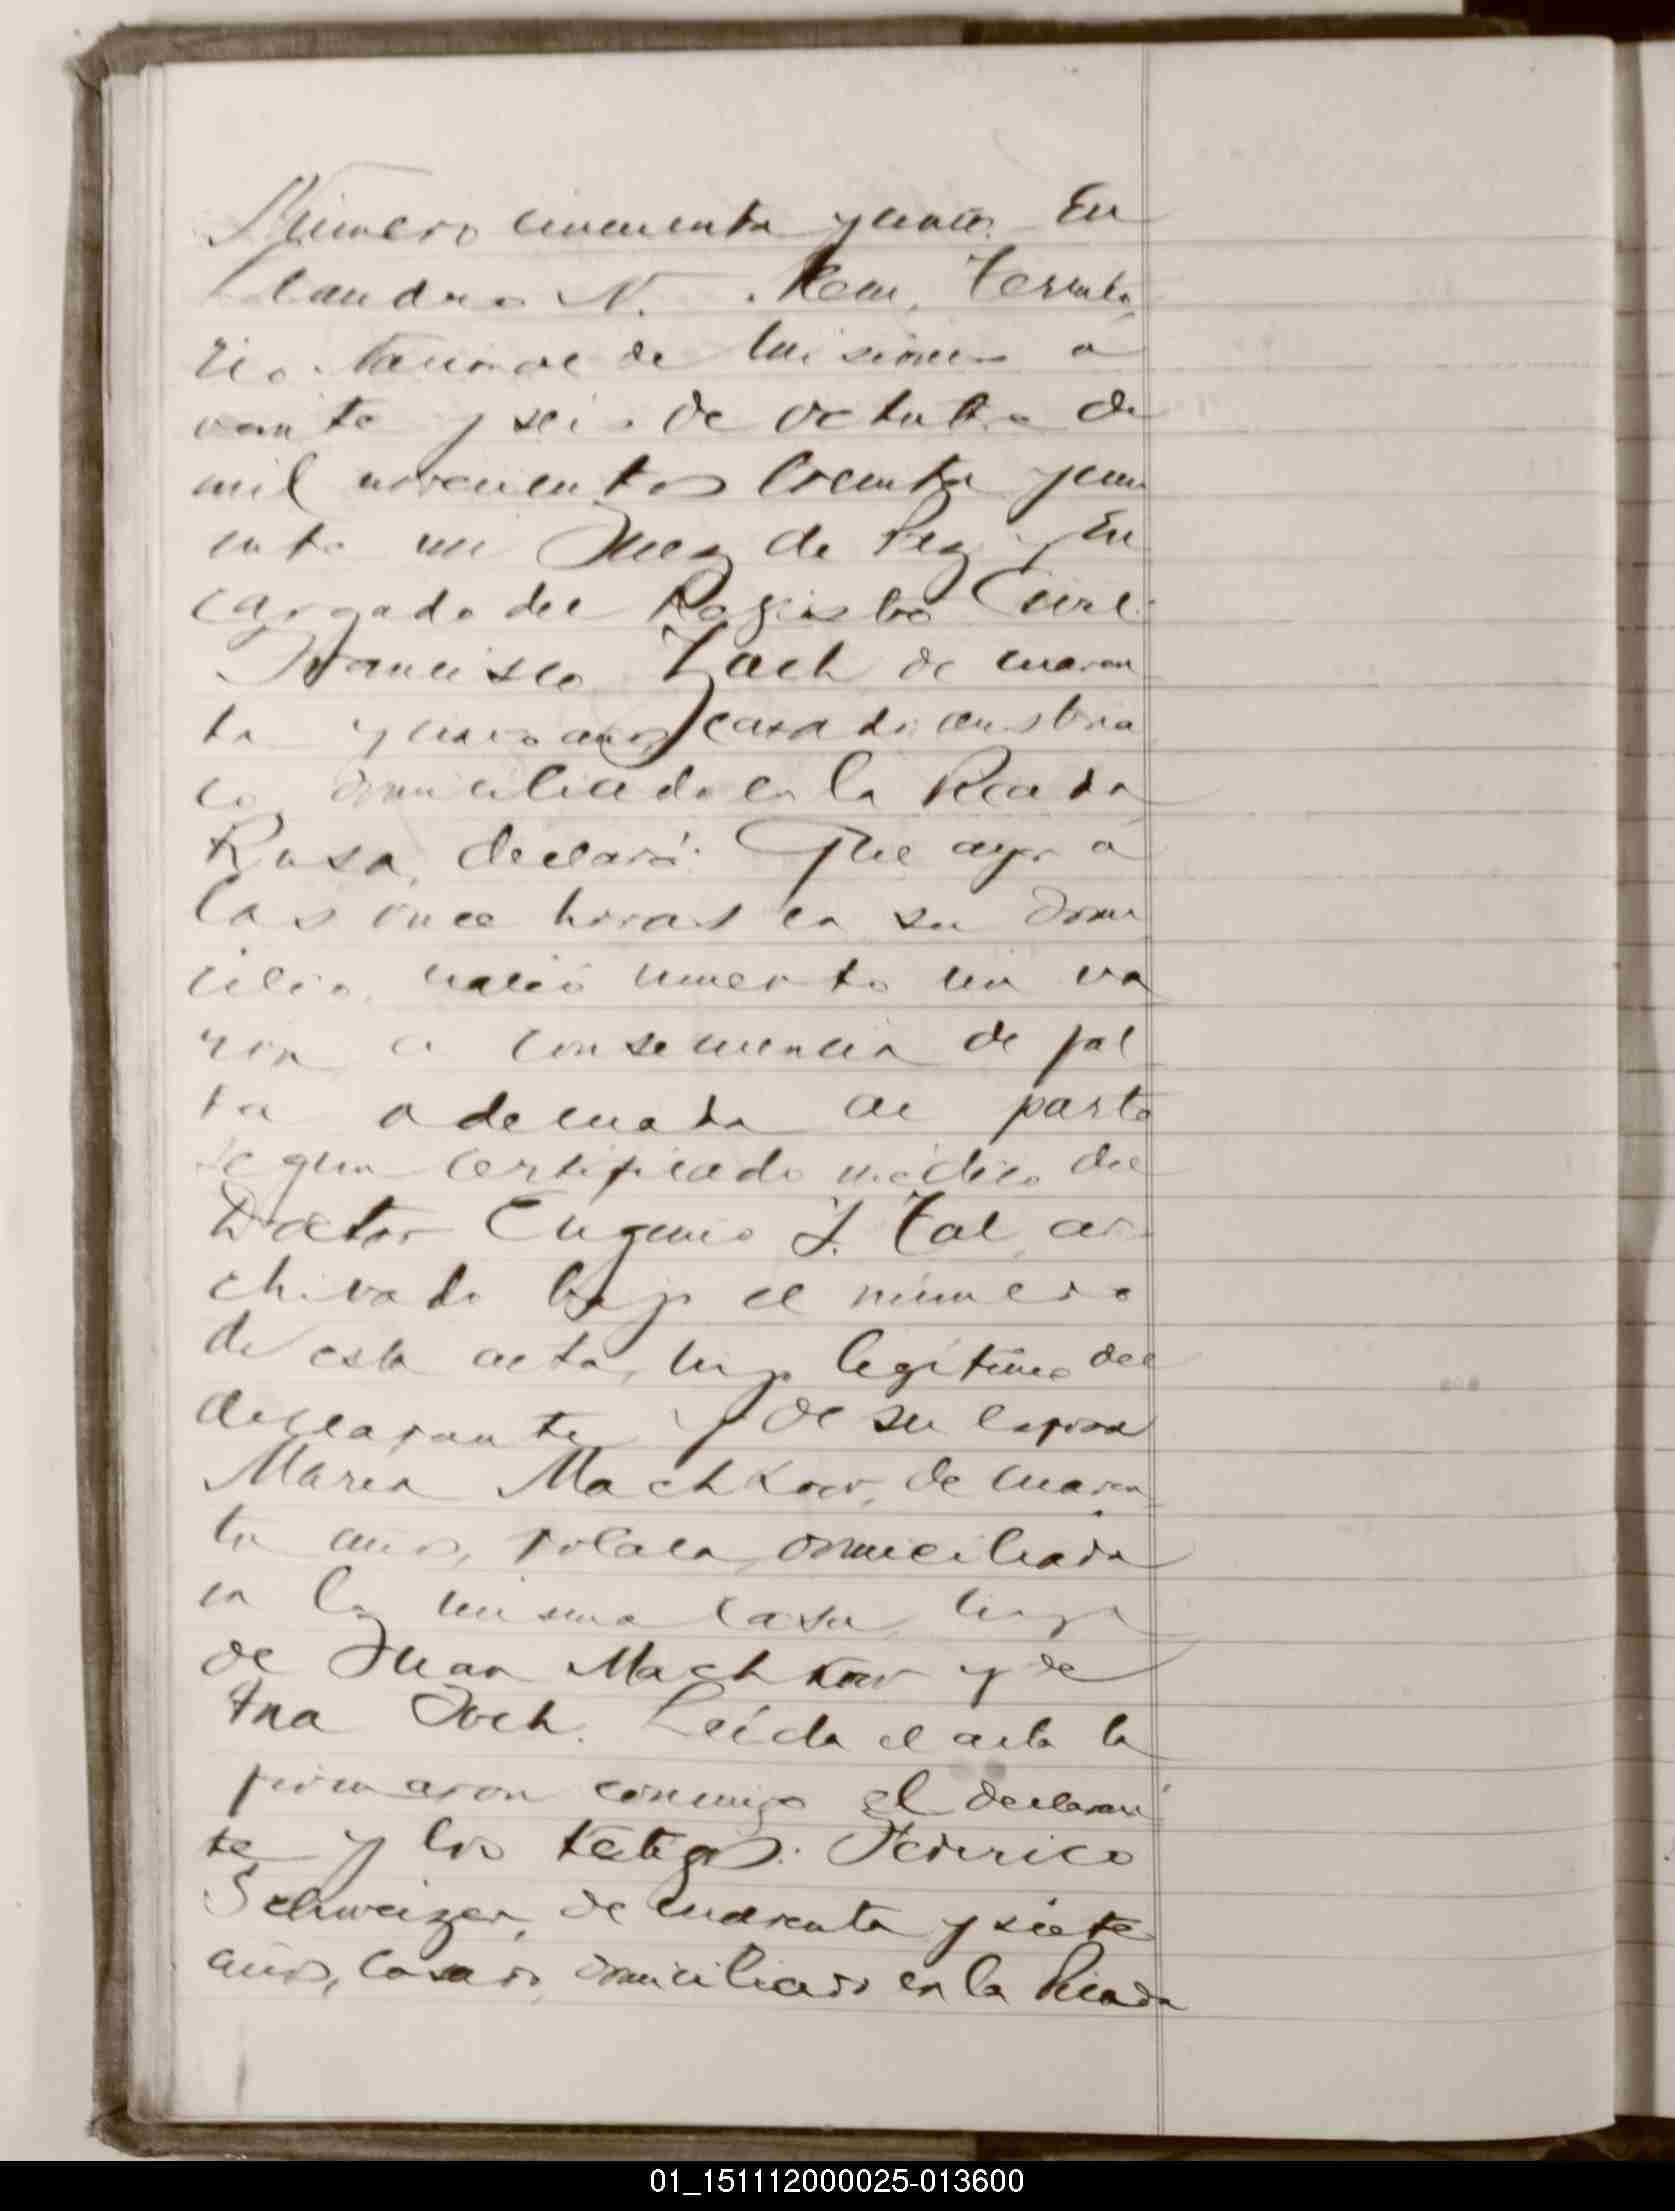 Número cincuenta y cinco. En
Leandro N. Alem, Territo
rio Nacional de Misiones a
veinte y seis de octubre de
mil novecientos treinta y
ante mi Juez de Paz y En
cargado del Registro Civil
Francisco Zach de cuaren
ta y cinco años casado austria
co, domiciliado en la Picada
Rusa, declaró: Que ayer a
las once horas en su domi
cilio, nació muerto un va
rón a consecuencia de fal
ta adecuada al parto
segun certificado médico del
Doctor Eugenio J. Tal, ar
chivado bajo el número
de esta acta, hijo legítimo del
declarante y de su esposa
Maria Machkow, de cuaren
ta años, polaca, domiciliada
en la misma casa, hija
de Juan Machkow y de
Ana. Leída el acta la
firmaron conmigo el declaran
te y los testigos: Federico
Schweizer, de cuarenta y siete
años, casado, domiciliado en la Picada
01_151112000025-013600